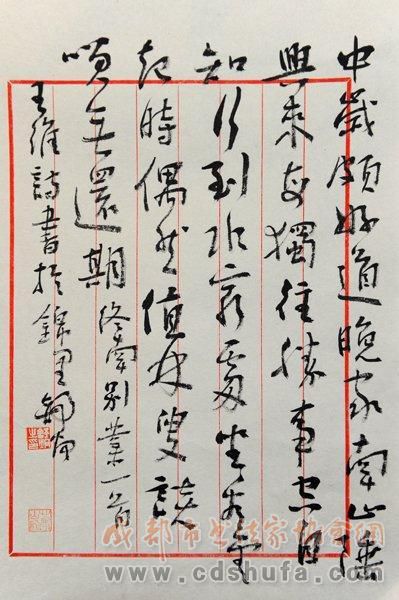 中歲頗好道晚家南山陲
興來每獨往勝事空自
知行到水窮處坐看雲
起時偶然值林叟談
咲無還期終南別業一首
王維詩書於錦里
成都市书法家协会网
www.cdshufa.com